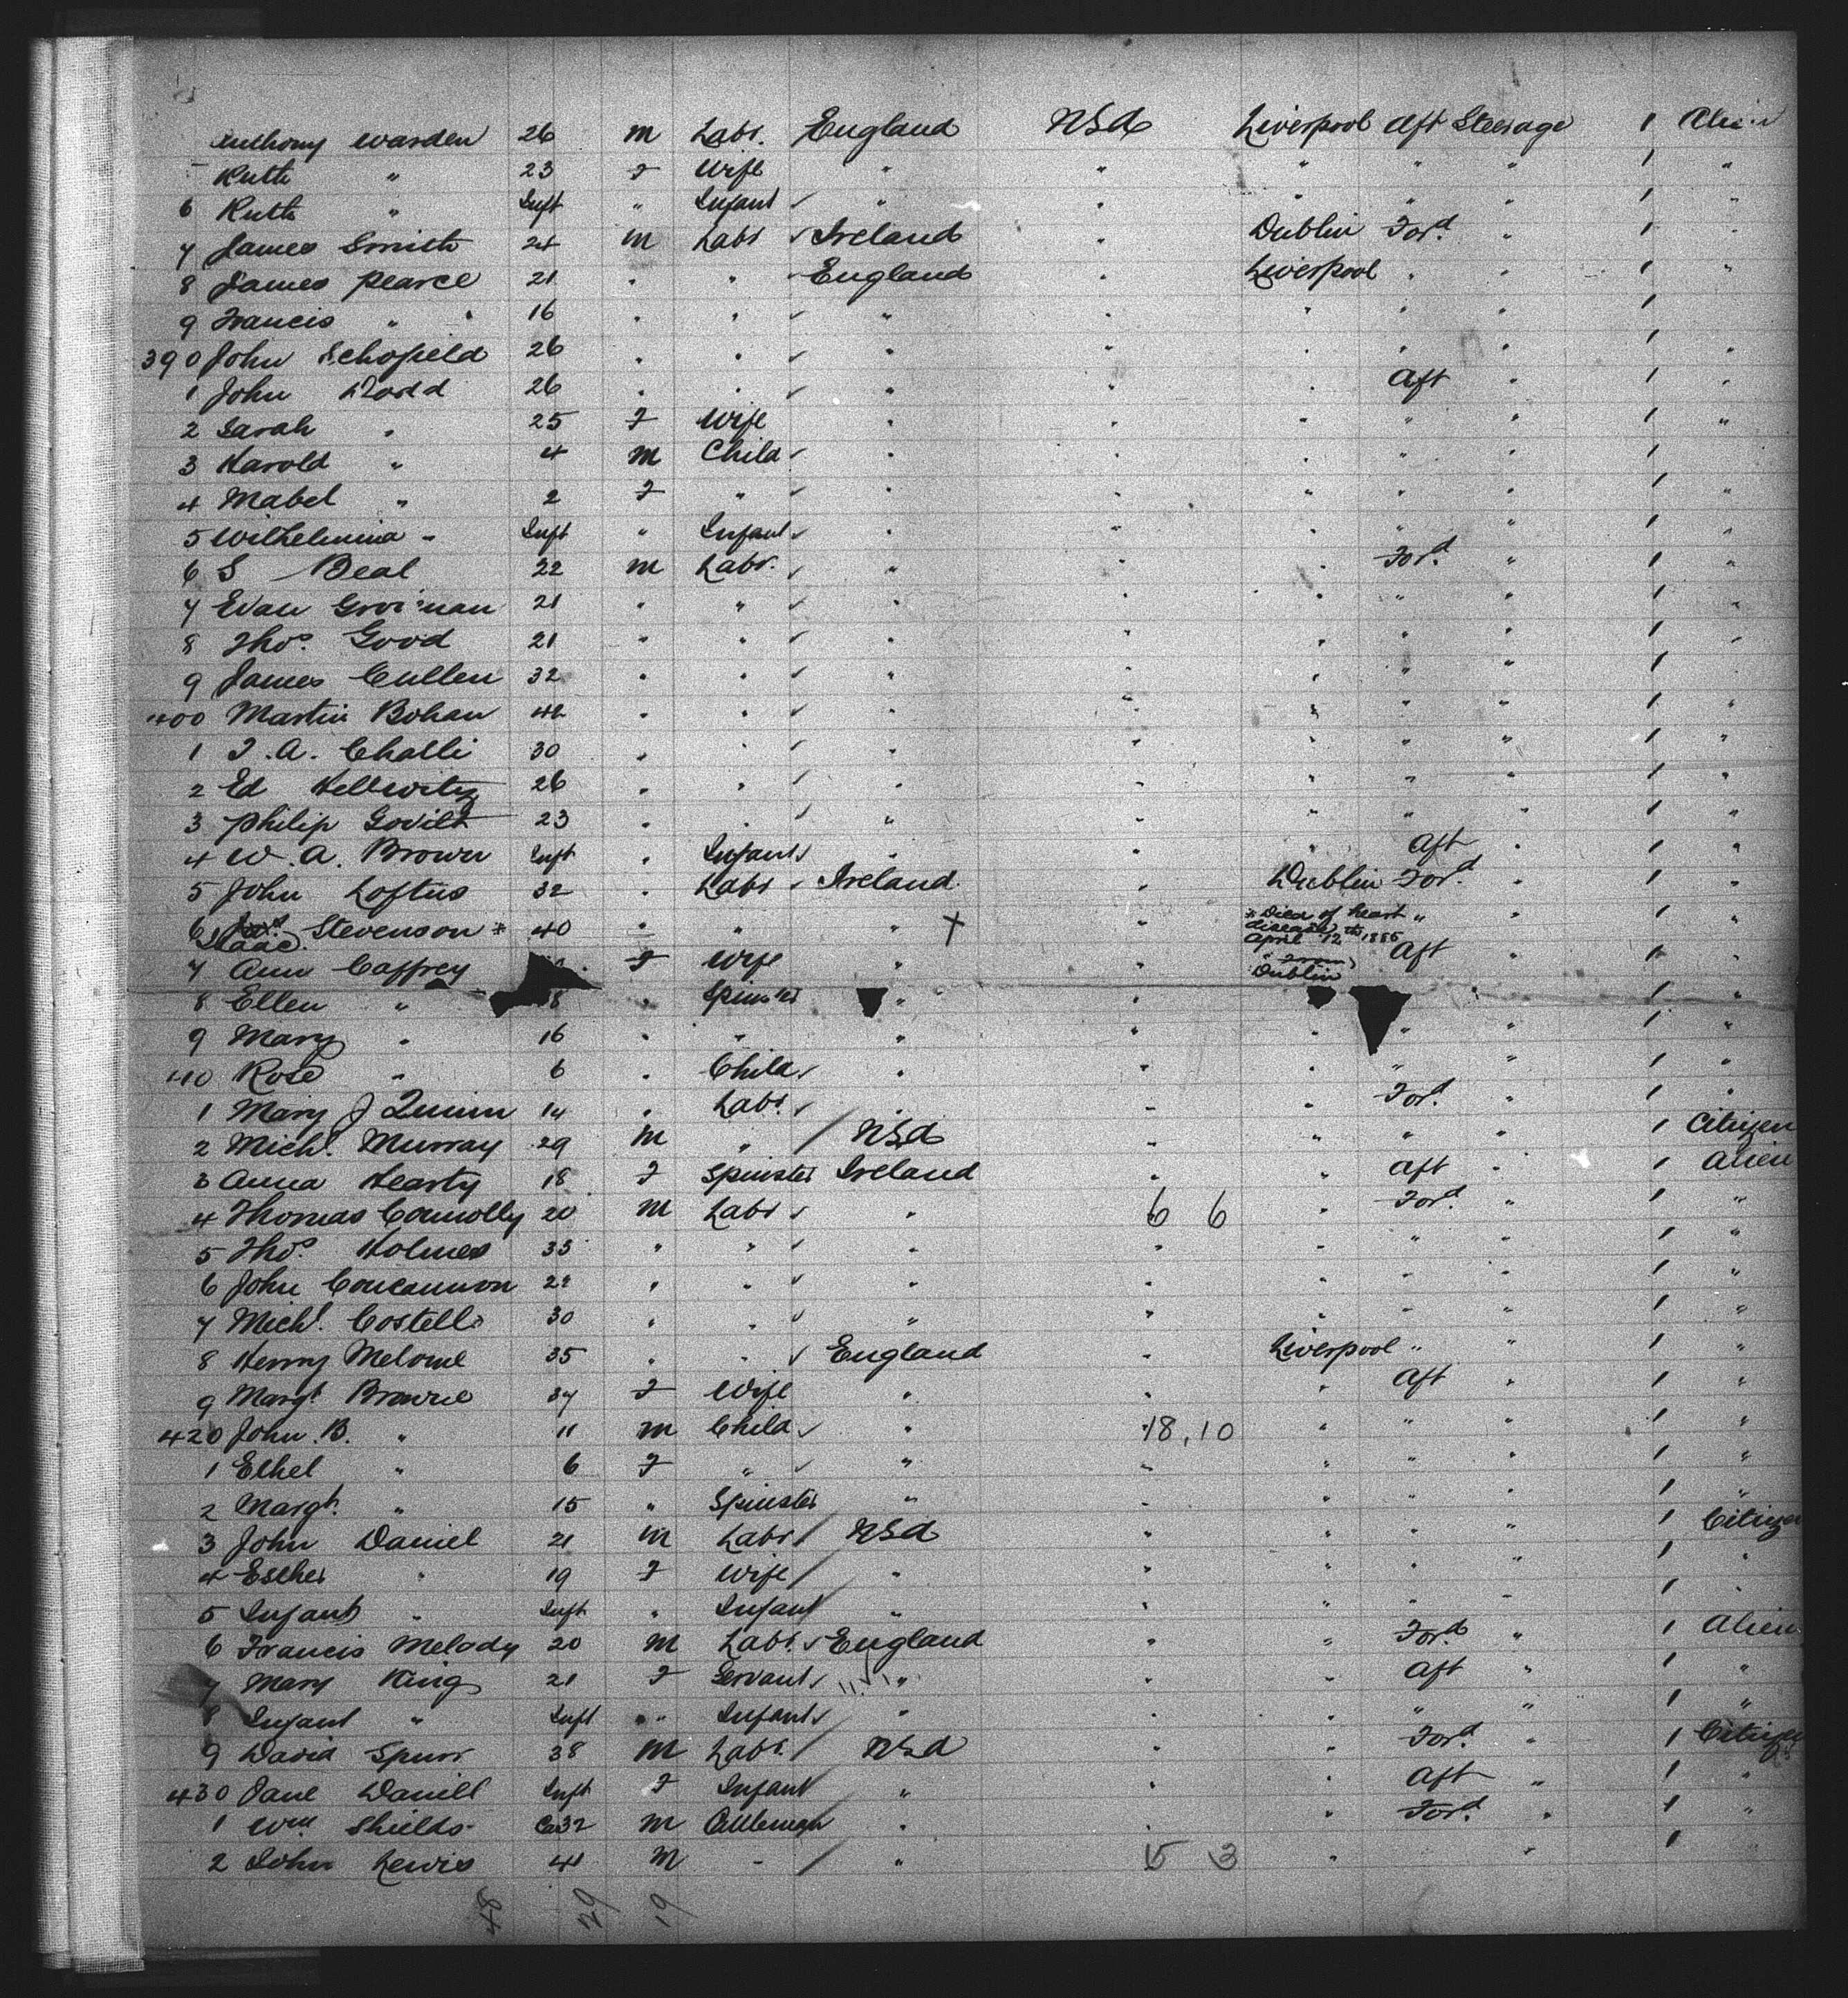 Anthony Warden 26 m Labr. England USA Liverpool Aft Steerage 1 Alien
Ruth " 23 F Wife " " " " " 1 "
6 Ruth " Inft " Infant " " " " " 1 "
7 James Smith 24 m Labr Ireland " Dublin Ford. " 1 "
8 James Pearce 21 " " England " Liverpool " " 1 "
9 Francis " 16 " " " " " " " 1
390 John Schofield 26 " " " " " " " 1 "
1 John Dodd 26 " " " " " Aft " 1 "
2 Sarah " 25 F Wife " " " " " 1 "
3 Harold " 4 m Child " " " " " 1
4 Mabel " 2 F " " " " " " 1 "
5 Wilhelmina " Inft " Infant " " " " " 1 "
6 S Beal 22 m Labr. " " " Ford. " 1 "
7 Evan 21 " " " " " " " 1 "
8 Thos. Good 21 " " " " " " " 1 "
9 James Cullen 32 " " " " " " " 1 "
400 Martin Bohan 42 " " " " " " " 1 "
1 J. A. Challi 30 " " " " " " " 1 "
2 Ed 26 " " " " " " " 1 "
3 Philip 23 " " " " " " " 1 "
4 W. A. Brown Inft " Infant " " " Aft " 1 "
5 John Loftus 32 " Labr Ireland. " Dublin Ford. " 1 "
6 Isaac Stevenson * 40 " " " + " * Died of heart disease April 12th 1886 " " 1 "
7 Ann Caffrey F Wife " " from Dublin Aft 1 "
8 Ellen " 18 " Spinster " " " 1 "
9 Mary " 16 " " " " " " " 1 "
410 Rose " 6 " Child " " " " " 1 "
1 Mary J Quinn 14 " Labr. " " " Ford. " 1 "
2 Michl. Murray 29 m " / USA " " " " 1 Citizen
3 Anna Hearty 18 F Spinster Ireland " " Aft " 1 Alien
4 Thomas Connolly 20 m Labr " 6 6 " Ford. " 1 "
5 Thos. Holmes 33 " " " " " " " 1 "
6 John Concannon 22 " " " " " " " 1 "
7 Michl. Costello 30 " " " " " " " 1 "
8 Henry Melome 35 " " England " Liverpool " " 1 "
9 Margt. Browne 37 F Wife " " " Aft " 1 "
420 John. B. " 11 m Child " 18,10 " " " 1 "
1 Ethel " 6 F " " " " " " 1 "
2 Margt. " 15 " Spinster " " " " " 1 "
3 John Daniel 21 m Labr / USA " " " " 1 Citizen
4 Esther " 19 F Wife / " " " " " 1 "
5 Infant " Inft " Infant / " " " " " 1 "
6 Francis Melody 20 m Labr. England " " Ford. " 1 Alien
7 Mary King 21 F Servant " " " Aft " 1 "
8 Infant " Inft " Infant " " " " " 1 "
9 David Spurr 38 m Labr. / USA " " Ford. " 1 Citizen
430 Jane Daniell Inft F Infant / " " " Aft " 1 "
1 Wm Shields 32 m Cattleman " " " Ford. " 1 "
2 John Lewis 41 m " / " 15 3 " " 1
48 29 19